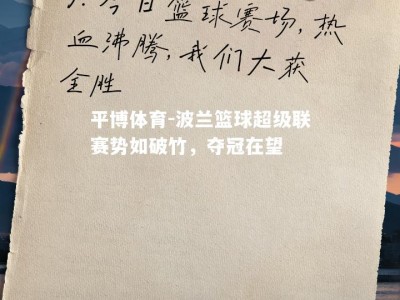 今日篮球赛场，热
血沸腾，我们大获
全胜
平博体育-波兰篮球超级联
赛势如破竹，夺冠在望